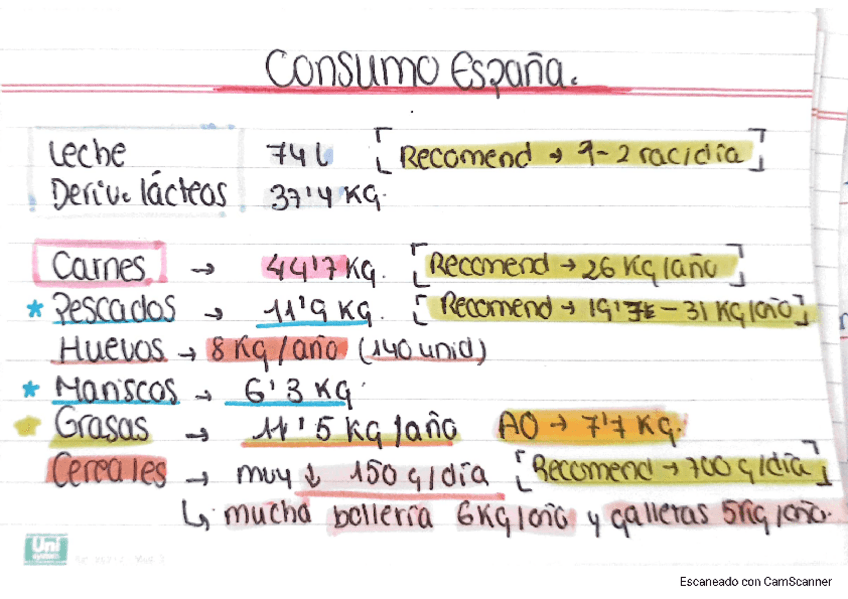 Consumo España.
Leche 74 L [Recomend → 1-2 rac/día]
Deriv. lácteos 37'4 KG.
Carnes → 44'7 KG. [Recomend → 26 KG/año]
* Pescados → 11'9 KG. [Recomend → 19' - 31 KG/año]
Huevos → 8 KG/año (140 unid)
* Mariscos → 6'3 KG.
Grasas → 11'5 KG/año AO → 7'7 KG.
Cereales → muy ↓ 150 g/día [Recomend → 700 g/día]
↳ mucha bollería 6KG/año y galletas 5KG/año.
Uni
system
Escaneado con CamScanner